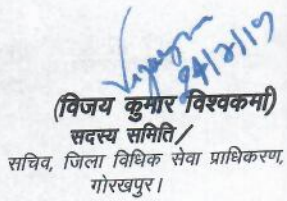 24/2/19
(विजय कुमार विश्वकर्मा)
सदस्य समिति/
सचिव, जिला विधिक सेवा प्राधिकरण,
गोरखपुर।